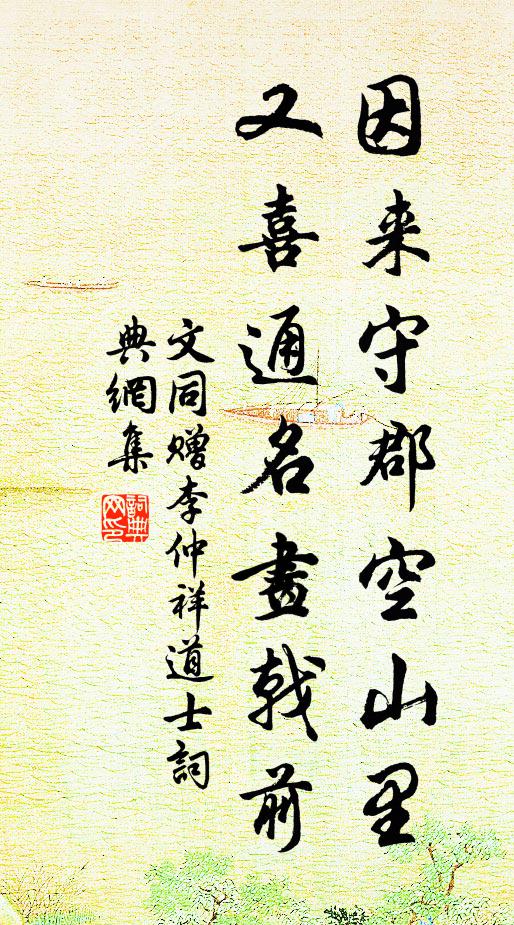 因来守郡空山里
又喜通名畫戟前
文同赠李仲祥道士詞
典網集
詞典
网印